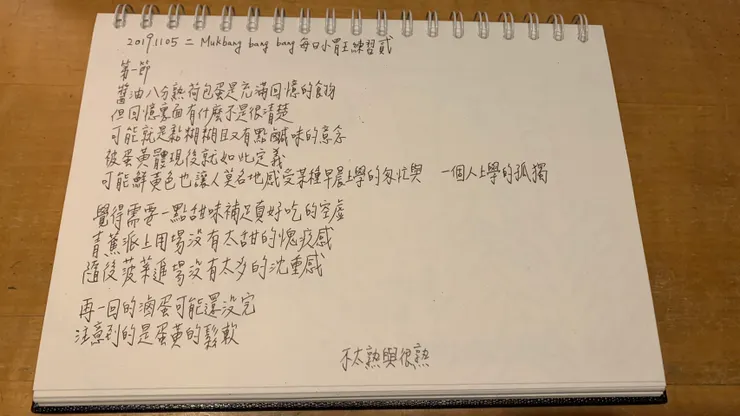 20191105 二 Mukbang bang bang 每日小胃王練習貳
第一節
醬油八分熟荷包蛋是充滿回憶的食物
但回憶裏面有什麼不是很清楚
可能就是黏糊糊且又有點鹹味的意念
被蛋黃體現後就如此定義
可能鮮黃色也讓人莫名地感受某種早晨上學的匆忙與 一個人上學的孤獨
覺得需要一點甜味補足真好吃的空虛
青蕉派上用場沒有太甜的愧疚感
隨後菠菜進場沒有太多的沈重感
再一回的滷蛋可能還沒完
注意到的是蛋黃的鬆軟
不太熟與很熟